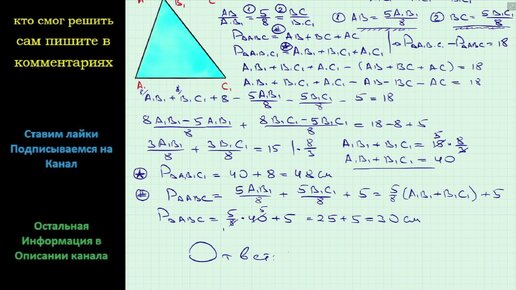 кто смог решить
сам пишите в
комментариях
Ставим лайки
Подписываемся на
Канал
Остальная
Информация в
Описании канала
A₁ B₁ C
A₁ C₁
AB/A₁B₁ = 5/8 = BC/B₁C₁ ① AB = 5A₁B₁/8 ② BC = 5B₁C₁/8
P△ABC = AB + BC + AC
P△A₁B₁C₁ = A₁B₁ + B₁C₁ + A₁C₁ P△A₁B₁C₁ − P△ABC = 18
A₁B₁ + B₁C₁ + A₁C₁ − (AB + BC + AC) = 18
A₁B₁ + B₁C₁ + A₁C₁ − AB − BC − AC = 18
A₁B₁ + B₁C₁ + 8 − 5A₁B₁/8 − 5B₁C₁/8 − 5 = 18
8A₁B₁ − 5A₁B₁/8 + 8B₁C₁ − 5B₁C₁/8 = 18 − 8 + 5
3A₁B₁/8 + 3B₁C₁/8 = 15 | · 8/3 A₁B₁ + B₁C₁ = 15 · 8/3
A₁B₁ + B₁C₁ = 40
P△A₁B₁C₁ = 40 + 8 = 48 см
P△ABC = 5A₁B₁/8 + 5B₁C₁/8 + 5 = 5/8 (A₁B₁ + B₁C₁) + 5
P△ABC = 5/8 · 40 + 5 = 25 + 5 = 30 см
Ответ: